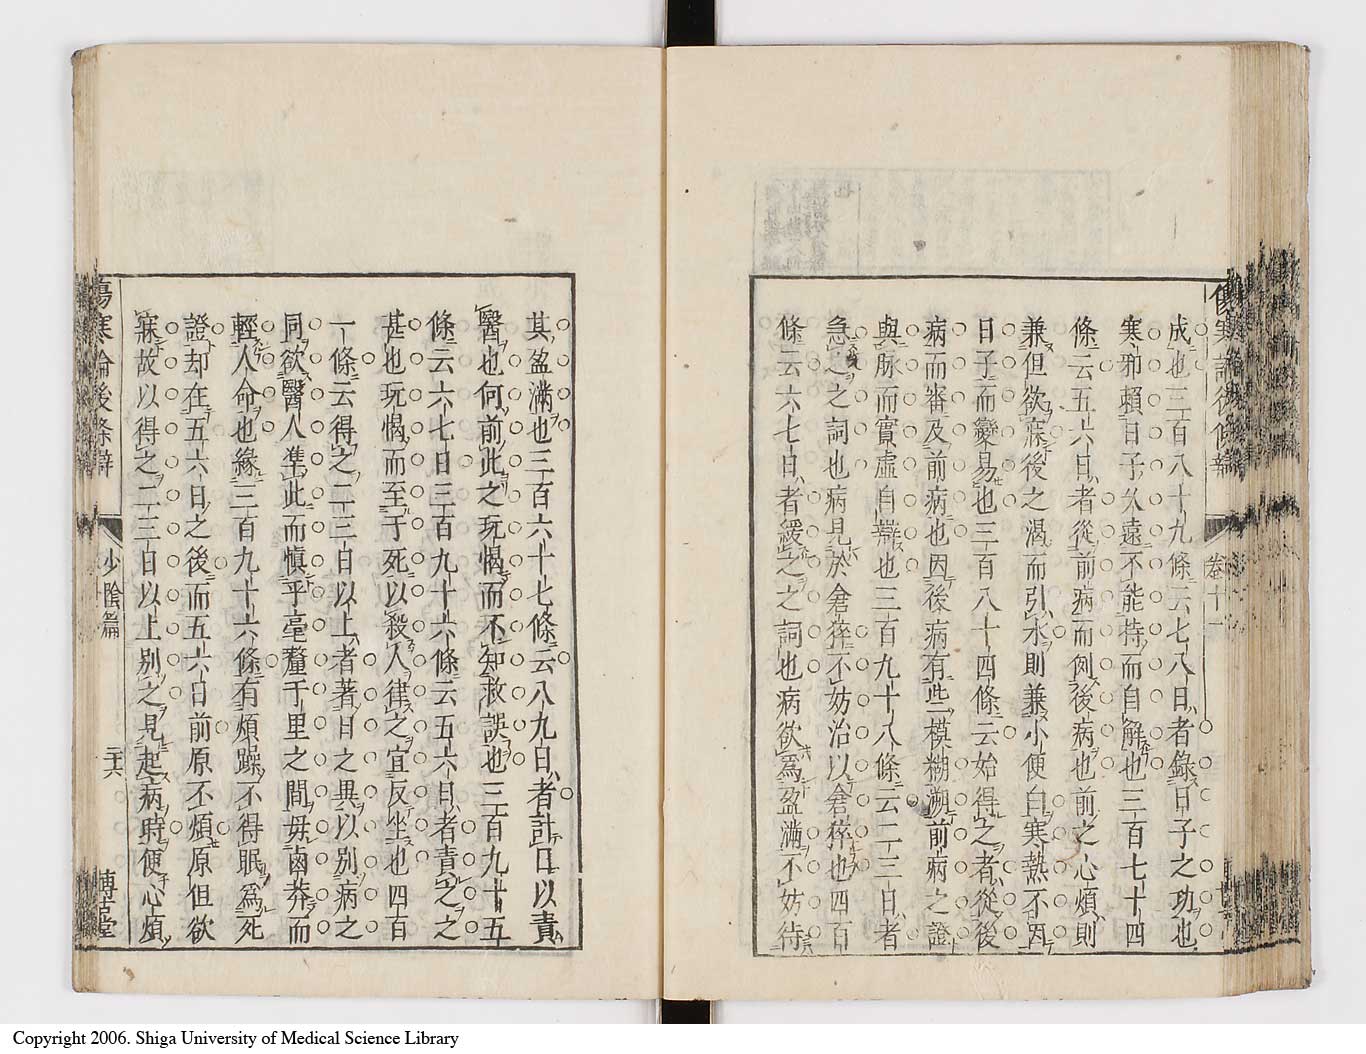 成也三百八十九條云七八日者錄日子之功也
寒邪賴日子久遠不能持而自解也三百七十四
條云五六日者從前病而例後病也前之心煩則
兼但欲寐後之渴而引水則兼小便白寒熱不因
日子而變易也三百八十四條云始得之者從後
病而審及前病也因後病有些模糊溯前病之證
與脉而實虛自辯也三百九十八條云二三日者
急之之詞也病見於倉猝不妨治以倉猝也四百
條云六七日者緩之之詞也病欲爲盈滿不妨待
卷十一
其盈滿也三百六十七條云八九日者計日以責
醫也何前此之玩愒而不知救誤也三百九十五
條云六七日三百九十六條云五六日者責之之
甚也玩愒而至于死以殺人律之宜反坐也四百
一條云得之二三日以上者著日之畀以別病之
同欲醫人準此而慎乎毫釐千里之間毋鹵莽而
輕人命也緣三百九十六條有煩躁不得眠爲死
證却在五六日之後而五六日前原不煩原但欲
寐故以得之二三日以上別之見起病時便心煩
傷寒論後條辯
少陰篇
二十六
博古堂
Copyright 2006. Shiga University of Medical Science Library